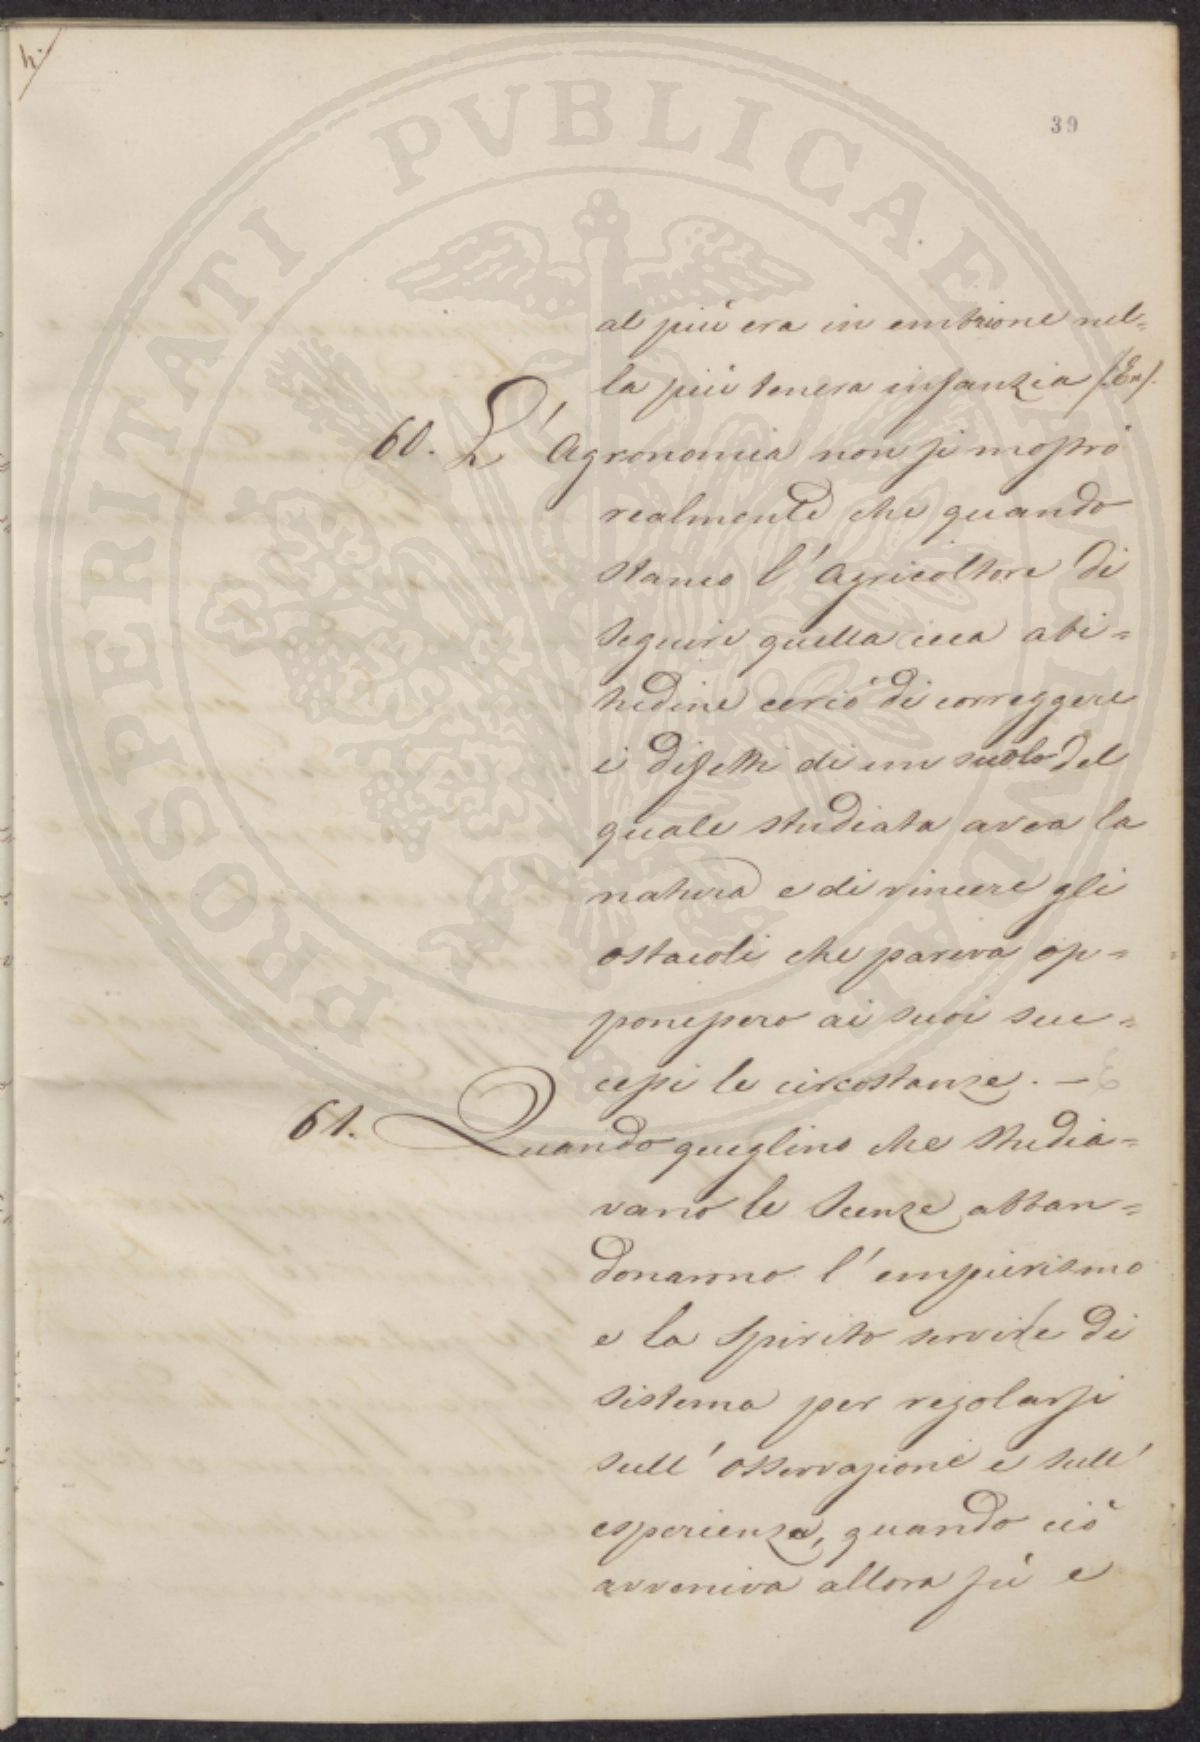 h.
39
PROSPERITATI PVBLICAE
al più era in embrione nel=
la più tenera infanzia (En).
60. L'Agronomia non si mostrò
realmente che quando
stanco l'Agricoltore di
seguire quella cieca abi=
tudine cercò di correggere
i difetti di un suolo del
quale studiata avea la
natura e di vincere gli
ostacoli che pareva op=
ponessero ai suoi suc=
cessi le circostanze. —
61. Quando queglino che studia=
vano le Scenze abban=
donarono l'empirismo
e lo Spirito servile di
sistema per regolarsi
sull'Osservazione e sull'
esperienza, quando ciò
avveniva allora fù e